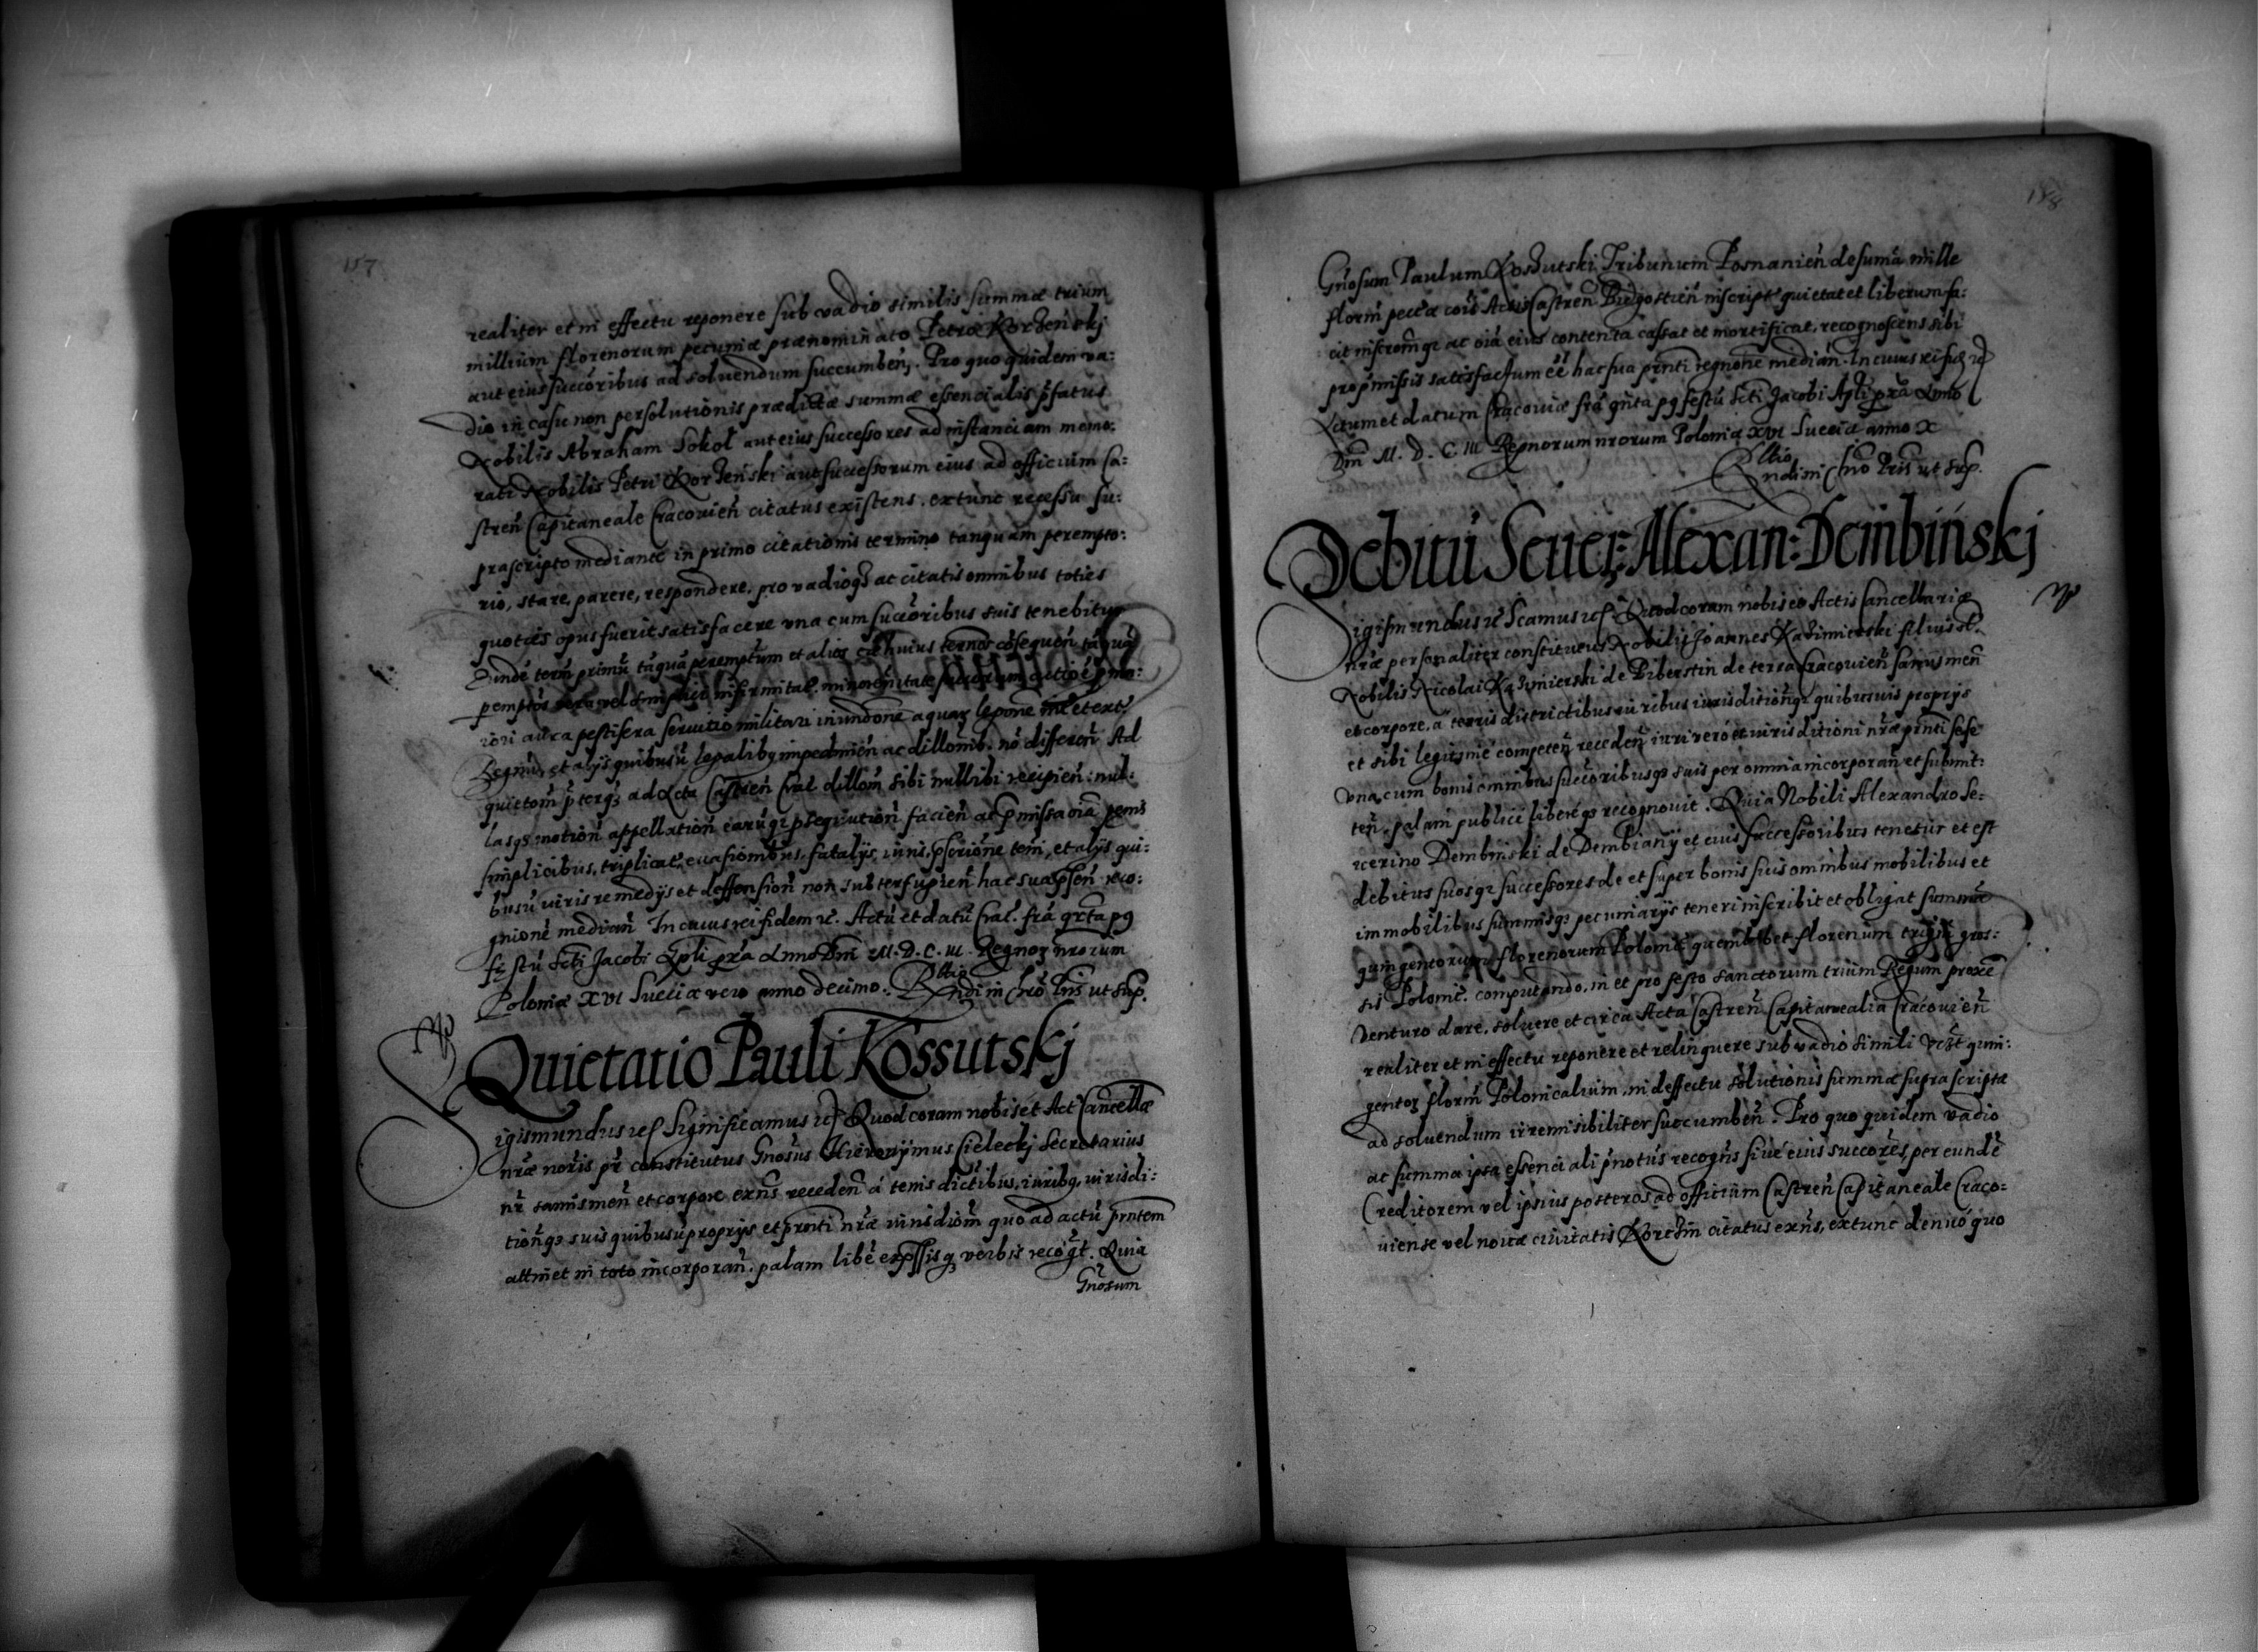 157
realiter et in effectu reponere sub vadio similis summæ trium
millium florenorum pecuniæ prænominato Petro Korzenskj
aut eius succoribus ad soluendum succumben. Pro quo quidem va:
dio in casu non persolutionis prædictæ summæ essencialis pfatus
Nobilis Abraham Sokoł aut eius successores ad instanciam memo:
rati Nobilis Petri Korzenski aut successorum eius ad officium Ca:
stren Capitaneale Cracouien citatus existens, extunc recessu su:
prascripto mediante in primo citationis termino tanquam perempto:
rio, stare, parere, respondere, pro vadioqз ac citatis omnibus toties
quoties opus fuerit satisfacere vna cum succoribus suis tenebitur
Eunde term primu taqua peremptum et alios huius termo cosequen taqua
pemptos
riori aura pestifera seruitio militari inundone aquaz lepone et ext
Regnu, et alijs quibusu legalibq impedimen ac dillomb. no differen Ad
quietom ptergз ad Acta Castren Crac dillom sibi nullibi recipien: nul:
lasqз motion appellation earuqз psequution facien ac pmissa oia
simplicibus, triplicat, euasionibus, fatalijs iuris, pscrione teni, et alijs qui:
busu iuris remedijs et deffension non subterfugien hac sua psen reco:
gnione median In cuius rei fidem rc. Actu et datu Crac. fra qrta pq
festu Scti Jacobi Apli pxa Anno Dni M. D. C. III. Regnoz nrorum
Poloniæ XVI Sueciæ vero anno decimo. Rltio Rndi in Chro Pris ut sup.
Quietatio Pauli Kossutskj
igismundus rc Significamus rc Quod coram nobis et Act Cancellæ
nræ noris pr constitutus Gnosus Hieronymus Cieleckj Secretarius
nr sanus men et corpore exns receden a terris dictibus, iuribq, iurisdi:
tionqз suis quibusu proprijs et pronti nræ iurisdiom quo ad actu pntem
attinet in toto incorporan, palam libe expssisqз verbis recogt. Quia
Gnosum
158
Gnosum Paulum Koszutski Tribunum Posnanien de suma mille
florin pecce cois Actis Castren Bidgostien inscript quietat et liberum fa:
cit inscromqз ac oia eius contenta cassat et mortificat, recognoscens sibi
pro pmissis satisfactum ee hac sua pnti regnone median. In cuius rei fid rc
Actum et datum Cracouiæ fra qnta pq festu Scti Jacobi Apli pxa Anno
Dni M. D. C. III Regnorum nrorum Poloniæ XVI Sueciæ anno X
Rltio
Rndi in Chro Pris ut sup.
Debitu Seuer: Alexan: Dembińskj
igismundus rc Scamus rc Quod coram nobis et Actis Cancellariæ
nræ personaliter constitutus Nobilis Joannes Kazimierski filius ol.
Nobilis Nicolai Kazimierski de Biberstin de terra Cracouien sanus men
et corpore, a terris districtibus iuribus iurisditionqз quibusuis proprijs
et sibi legitime competen receden iuri vero et iurisditioni nræ pnti sese
vna cum bonis omnibus succoribusqз suis per omnia incorporan et submit:
ten, palam publice libereqз recognouit. Quia Nobili Alexandro Se:
uerino Dembinski de Dembiany et eius successoribus tenetur et est
debitus suosqз successores de et super bonis suis omnibus mobilibus et
immobilibus summisqз pecuniarijs teneri inscribit et obligat summa
quingentorum florenorum Polonic quemlibet florenum trigin gros:
sis Polonic. computando, in et pro festo sanctorum trium Regum proxe
venturo dare, soluere et circa Acta Castren Capitanealia Cracouien
realiter et in effectu reponere et relinquere sub vadio simili vczt quin:
gentoz florin Polonicalium, in deffectu solutionis summæ supra scriptæ
ad soluendum irremisibiliter succumben. Pro quo quidem vadio
ac summa ipsa essenciali pnotus recogns siue eius succores, per eunde
Creditorem vel ipsius posteros ad officium Castren Capitaneale Craco:
uiense vel nouæ ciuitatis Korczin citatus exns, extunc denuo quo